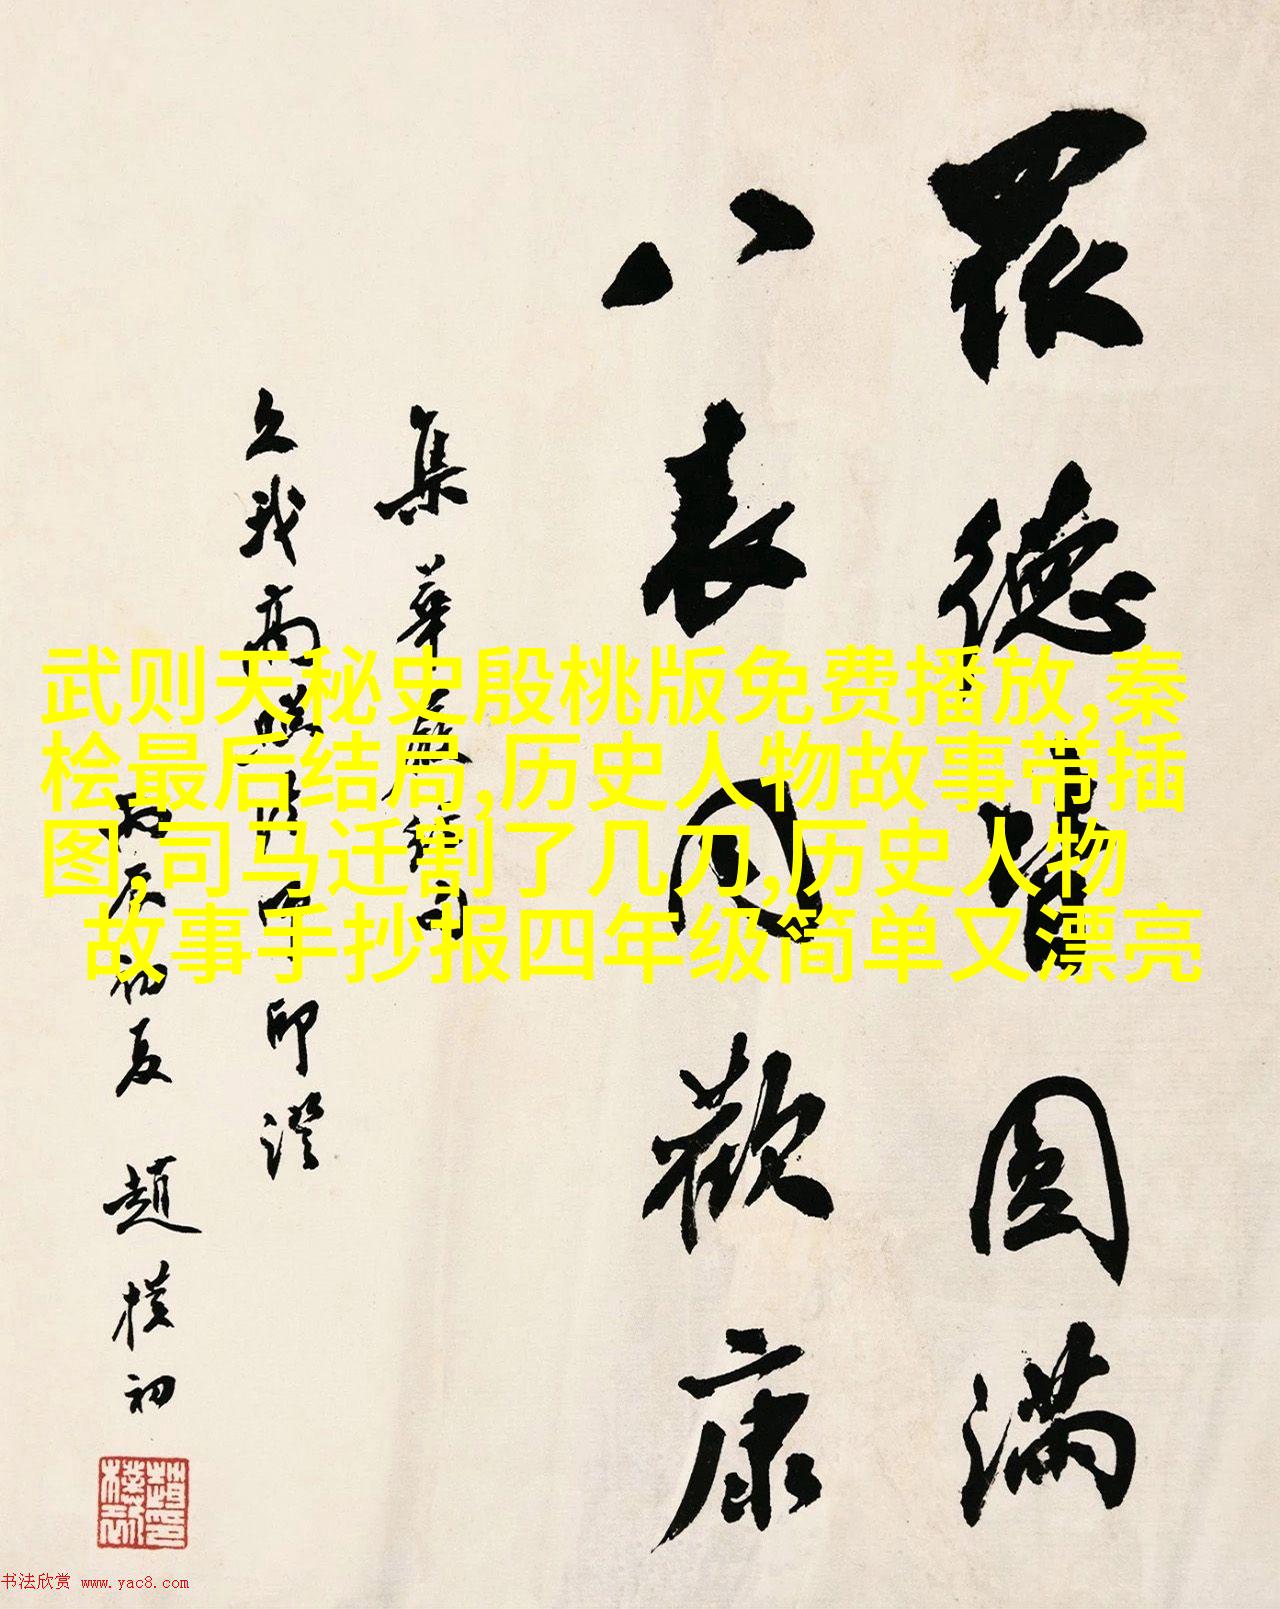 眾德皆圓滿
八表同歡康
集華嚴經句
久我高 印證
辰初夏 趙樸初
武则天秘史殷桃版免费播放,秦
桧最后结局,历史人物故事带插
图,司马迁割了几刀,历史人物
故事手抄报四年级简单又漂亮
书法欣赏 www.yac8.com